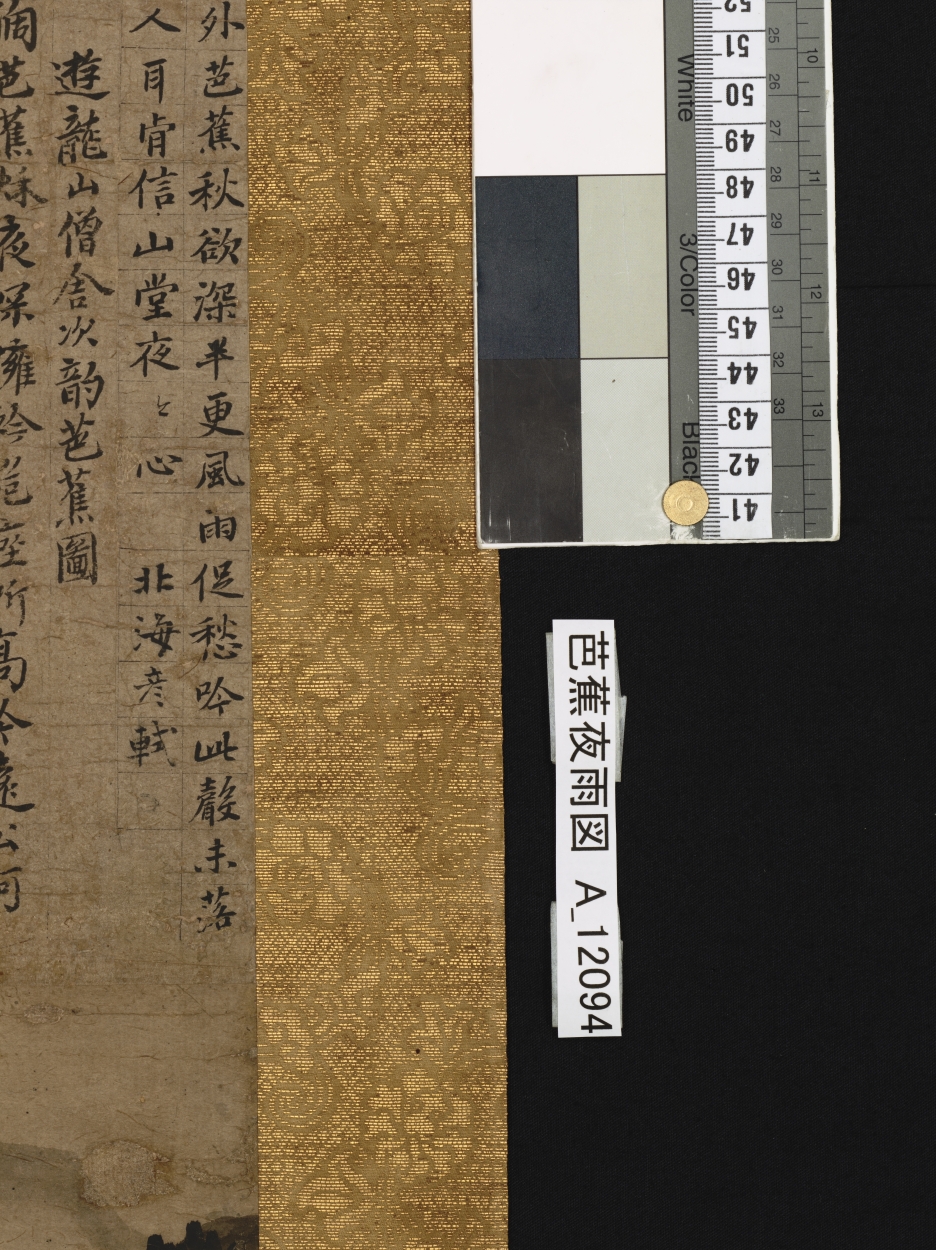 外芭蕉秋欲深半更風雨促愁吟此聲未落
人耳肯信山堂夜〻心 北海彦軾
遊龍山僧舎次韵芭蕉圖
芭蕉
夜深擁吟
座
高吟
公何
芭蕉夜雨図 A_12094
White
3/Color
Black
52 51 50 49 48 47 46 45 44 43 42 41
25 26 27 28 29 30 31 32 33
10 11 12 13